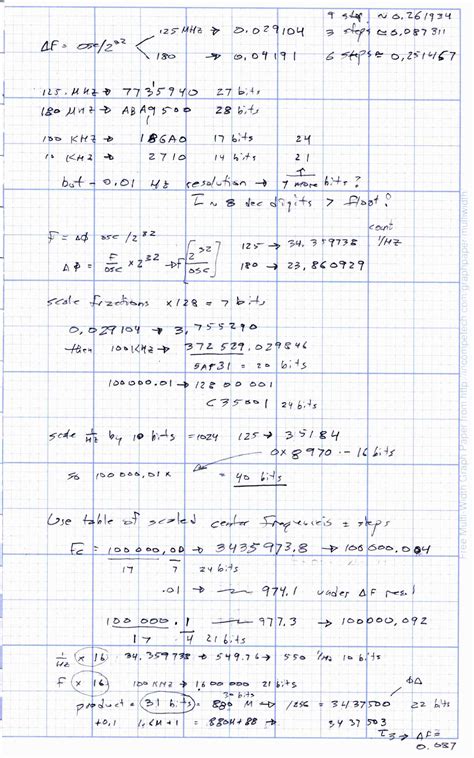 9 step ≈ 0.261934
125 MHz → 0.029104 3 steps ≈ 0.087311
ΔF = osc/2^32
180 → 0.04191 6 steps ≈ 0.251467
125 MHz → 7735940 27 bits
180 MHz → ABA9500 28 bits
100 KHz → 186A0 17 bits 24
10 KHz → 2710 14 bits 21
but - 0.01 Hz resolution → 7 more bits?
I ~ 8 dec digits > float?
count
F = ΔΦ osc/2^32 125 → 34.359738 1/Hz
ΔΦ = F/osc × 2^32 → F[2^32/osc] 180 → 23.860929
scale fractions ×128 = 7 bits
0.029104 → 3.725290
then 100KHz → 372529.029846
5AF31 = 20 bits
100000.01 → 12800001
C35001 24 bits
scale 1/Hz by 10 bits = 1024 125 → 35184
0x8970 - 16 bits
so 100000.01 × = 40 bits
Use table of scaled center frequencies ± steps
Fc = 100000,00 → 3435973.8 → 100000.004
17 7 24 bits
.01 → 974.1 under ΔF resol
100000.1 977.3 → 100000,092
17 4 21 bits
1/Hz × 16 34.359738 → 549.76 → 550 1/Hz 10 bits
F × 16 100 KHz → 1,600000 21 bits ΦΔ
30 bits
product = 31 bits = 880 M → /256 = 3437500 22 bits
+0.1 1.6M+1 = 880M+88 → 3437503
→ ΔF=
0.087